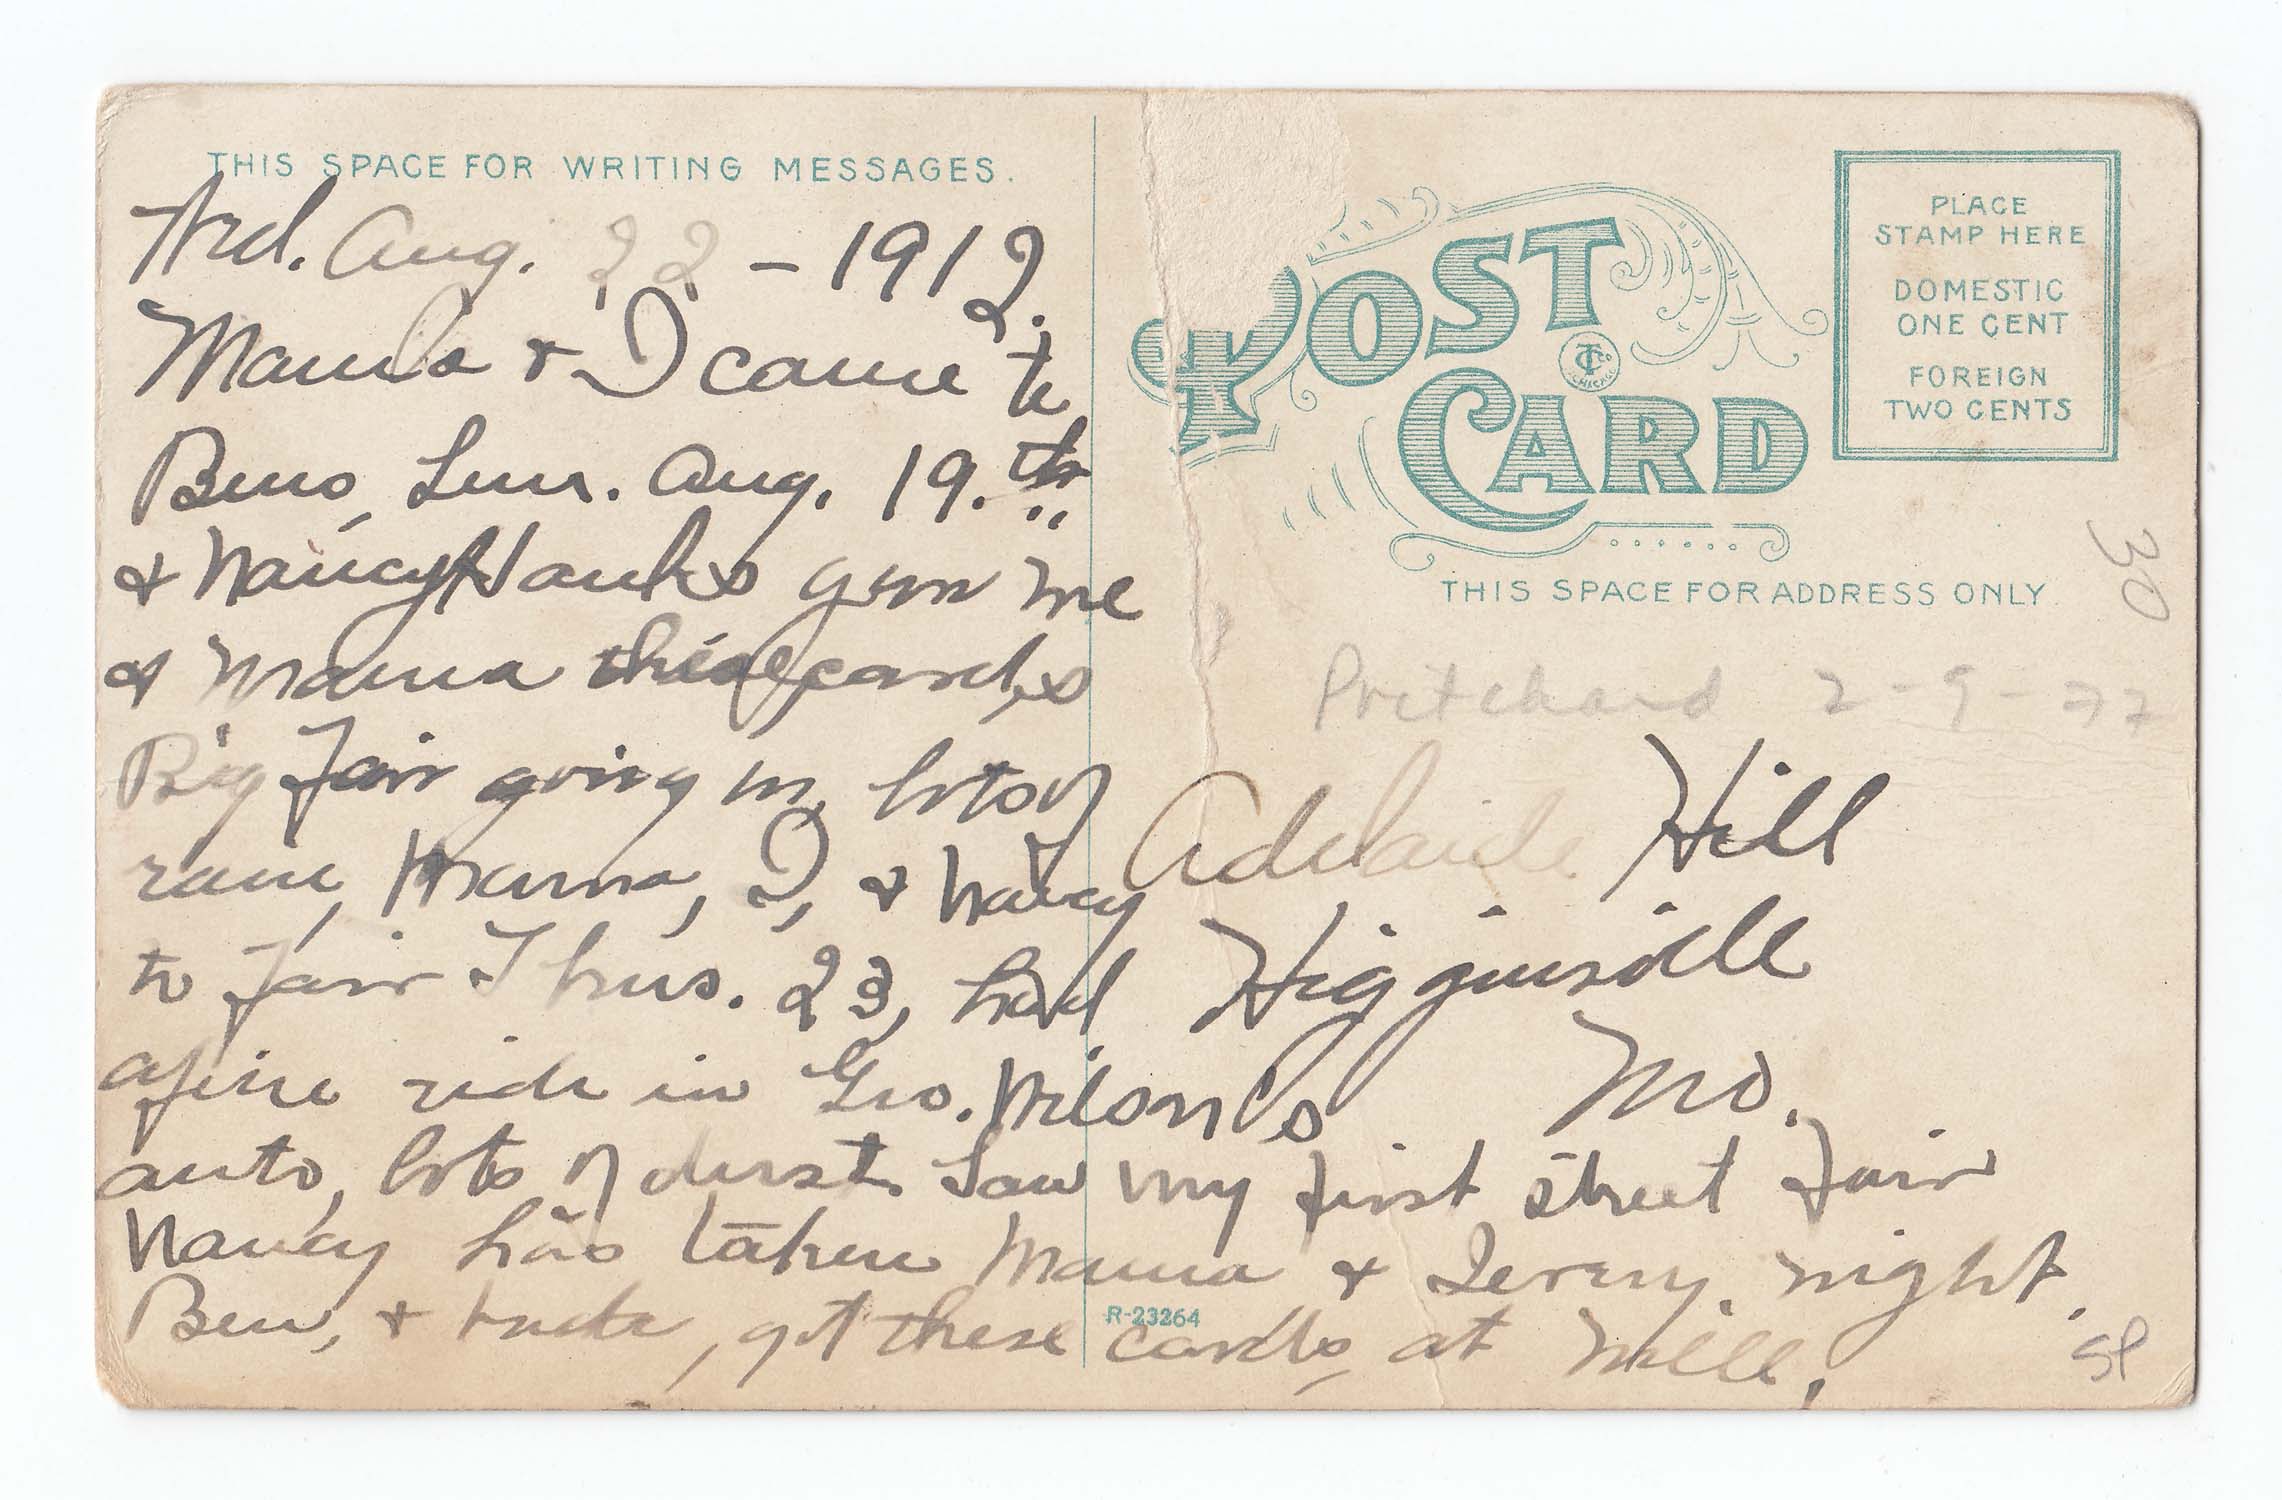 THIS SPACE FOR WRITING MESSAGES.
Aug. 22 - 1912.
Mama & I came to
Aug. 19.th
& Nancy Hanks give me
& Mama these cards
Big Fair going on, lots of
Mama, I, & Nancy
to Fair Thus. 23, had
a fine ride in Geo. Wilson's
auto, lots of dust. Saw my first street Fair
Nancy has taken Mama & night.
Ben, & got these cards, at Mill.
R-23264
POST CARD
CHICAGO
PLACE
STAMP HERE
DOMESTIC
ONE CENT
FOREIGN
TWO CENTS
THIS SPACE FOR ADDRESS ONLY.
30
Pritchard 2-9-77
Adelaide Hill
Higginsville
Mo.